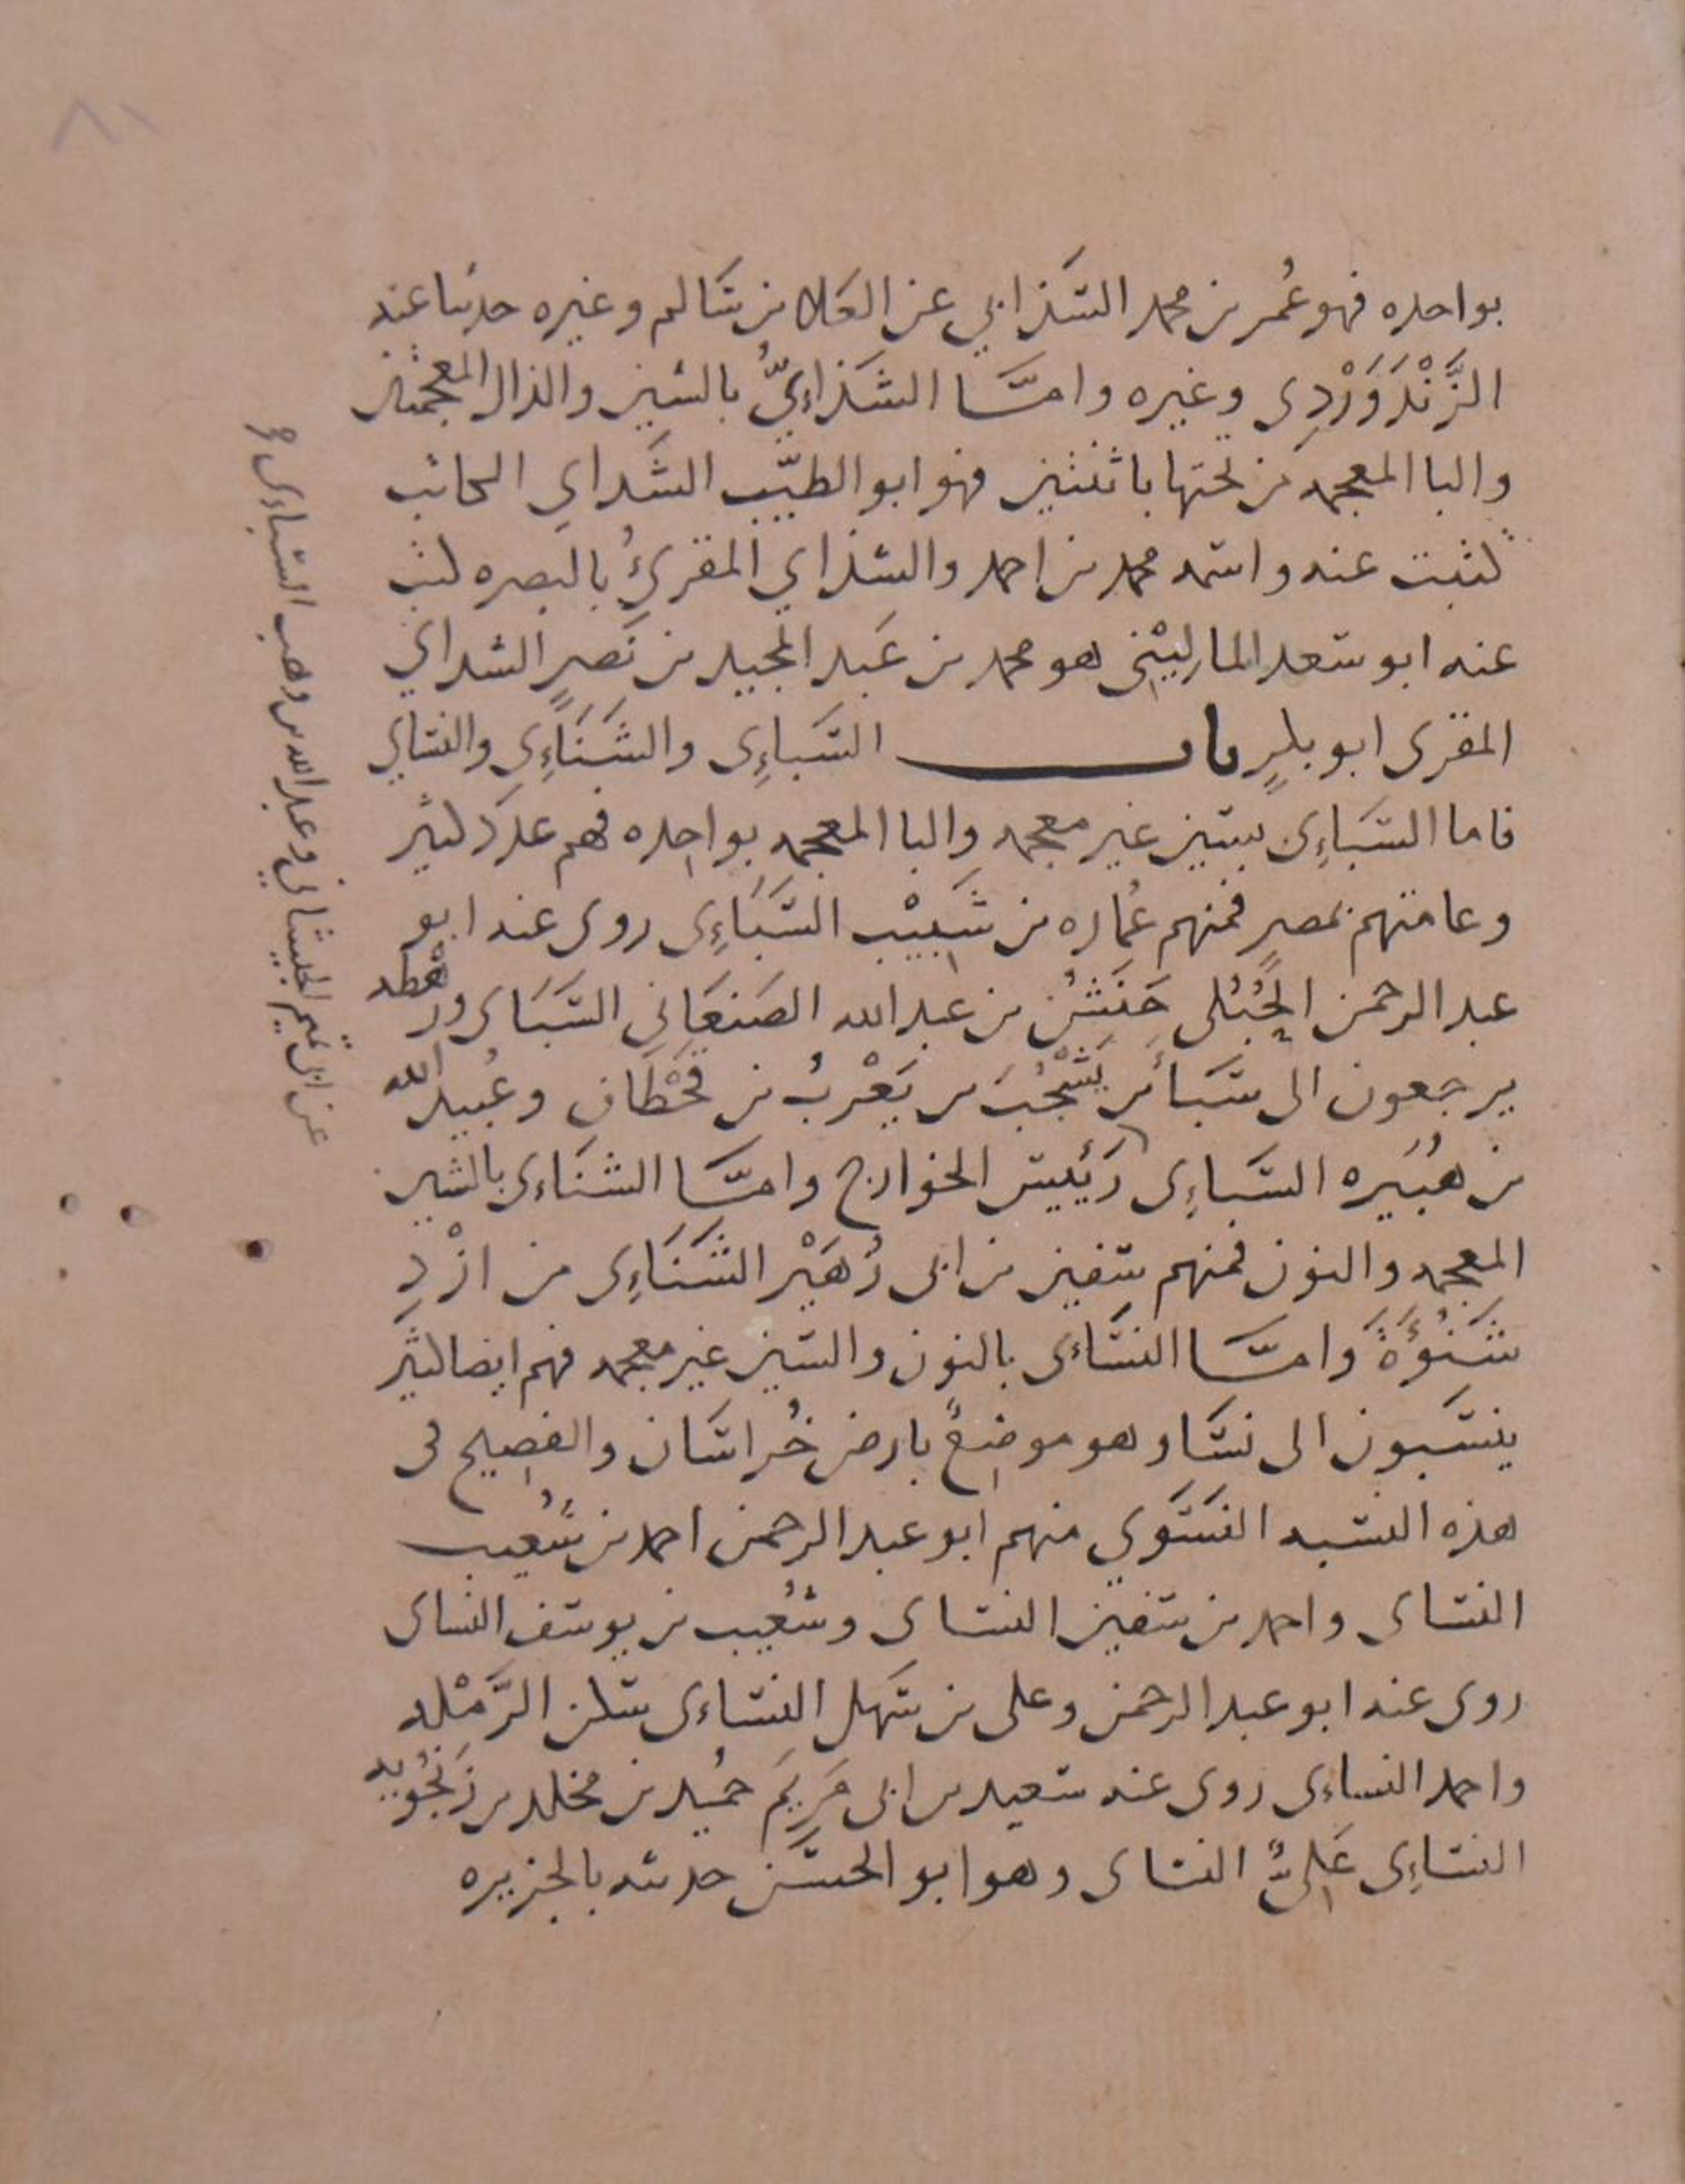 بواحده فهو عُمر بن محمد السَذابي عن العَلا بن سَالم وغيره حدثنا عنه
الزَّنْدَوَرْدِي وغيره وامَّا الشَذَاءِيُّ بالشين والذال المعجمتين
واليا المعجمه من تحتها باثنتين فهو ابو الطيّب الشَذاي الكاتب
كتبت عنه واسمه محمد بن احمد والشذاي المقرئُ بالبصره كتب
عنه ابو سعد الماليْني هو محمد بن عَبد المجيد بن نَصرٍ الشذاي
المقرى ابو بكرٍ باب السَباءِى والشَنَاءِى والنسَاي
فاما السَبَاءِى بسين غير معجمه والبا المعجمه بواحده فهم عدد كثير
وعامتهم بمصرٍ فمنهم عُماره بن شَبِيْب السَبَاءِى روى عنه ابو
عبد الرحمن الحُبُلى حَنَشُ بن عبد الله الصَنعَاني السَبَاى ورهْطه
يرجعون الى سَبَأ بن يَشْجُبَ بن يَعْرُبُ بن قَحْطَان وعُبيد الله
بن هُبَيره السَباءِى رَئيس الخوارج وامَّا الشنَاءى بالشين
المعجمه والنون فمنهم سفين بن ابى زُهَيْر الشَنَاءِى من ازْدِ
شَنُوْءَةَ وامَّا النسَاءى بالنون والسين غير معجمه فهم ايضا كثير
ينسَبون الى نسَا وهو موضِعٌ بارض خُراسَان والفصيح فى
هذه النسبه النسَوي منهم ابو عبد الرحمن احمد بن شُعيب
النساى واحمد بن سفين النساى وشُعيب بن يوسف النساى
روى عنه ابو عبد الرحمن وعلى بن سَهل النسَاءى سكن الرَّمْله
واحمد النساءى روى عنه سعيد بن ابى مَريَمَ حميد بن مخلد بن زَنجُويه
النسَاءِى عَلىٌّ النساى وهو ابو الحسَن حدثه بالجزيره
وعبد الله بن وهب السَباءى
عن ابى تميم الجيشاني